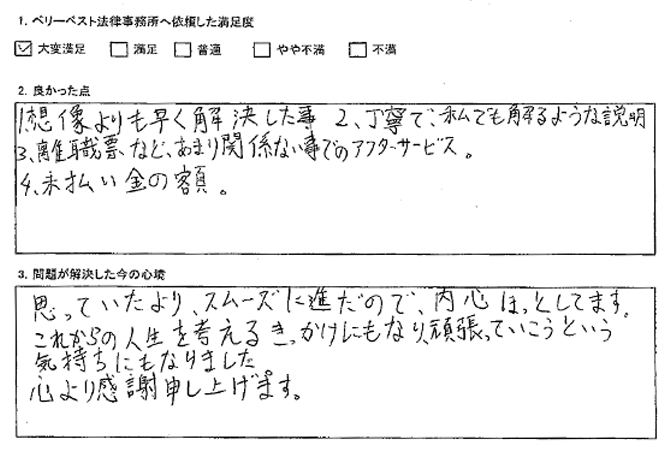 1. ベリーベスト法律事務所へ依頼した満足度
大変満足 満足 普通 やや不満 不満
2. 良かった点
1.想像よりも早く解決した事 2、丁寧で、私でも解るような説明
3、離職票など、あまり関係ない事でのアフターサービス。
4、未払い金の額。
3. 問題が解決した今の心境
思っていたより、スムーズに進だので、内心ほっとしてます。
これからの人生を考えるきっかけにもなり、頑張っていこうという
気持ちにもなりました
心より感謝申し上げます。